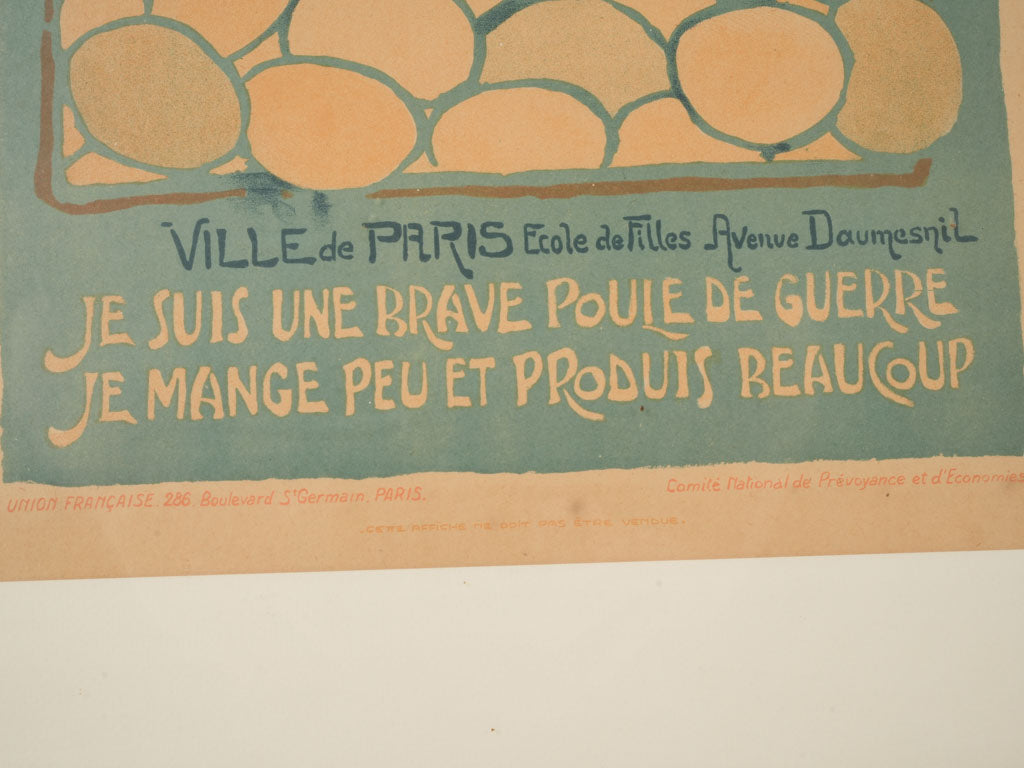 VILLE de PARIS Ecole de Filles Avenue Daumesnil
JE SUIS UNE BRAVE POULE DE GUERRE
JE MANGE PEU ET PRODUIS BEAUCOUP
UNION FRANÇAISE. 286. Boulevard St Germain. PARIS.
Comité National de Prévoyance et d'Economies
.CETTE AFFICHE NE DOIT PAS ÊTRE VENDUE.